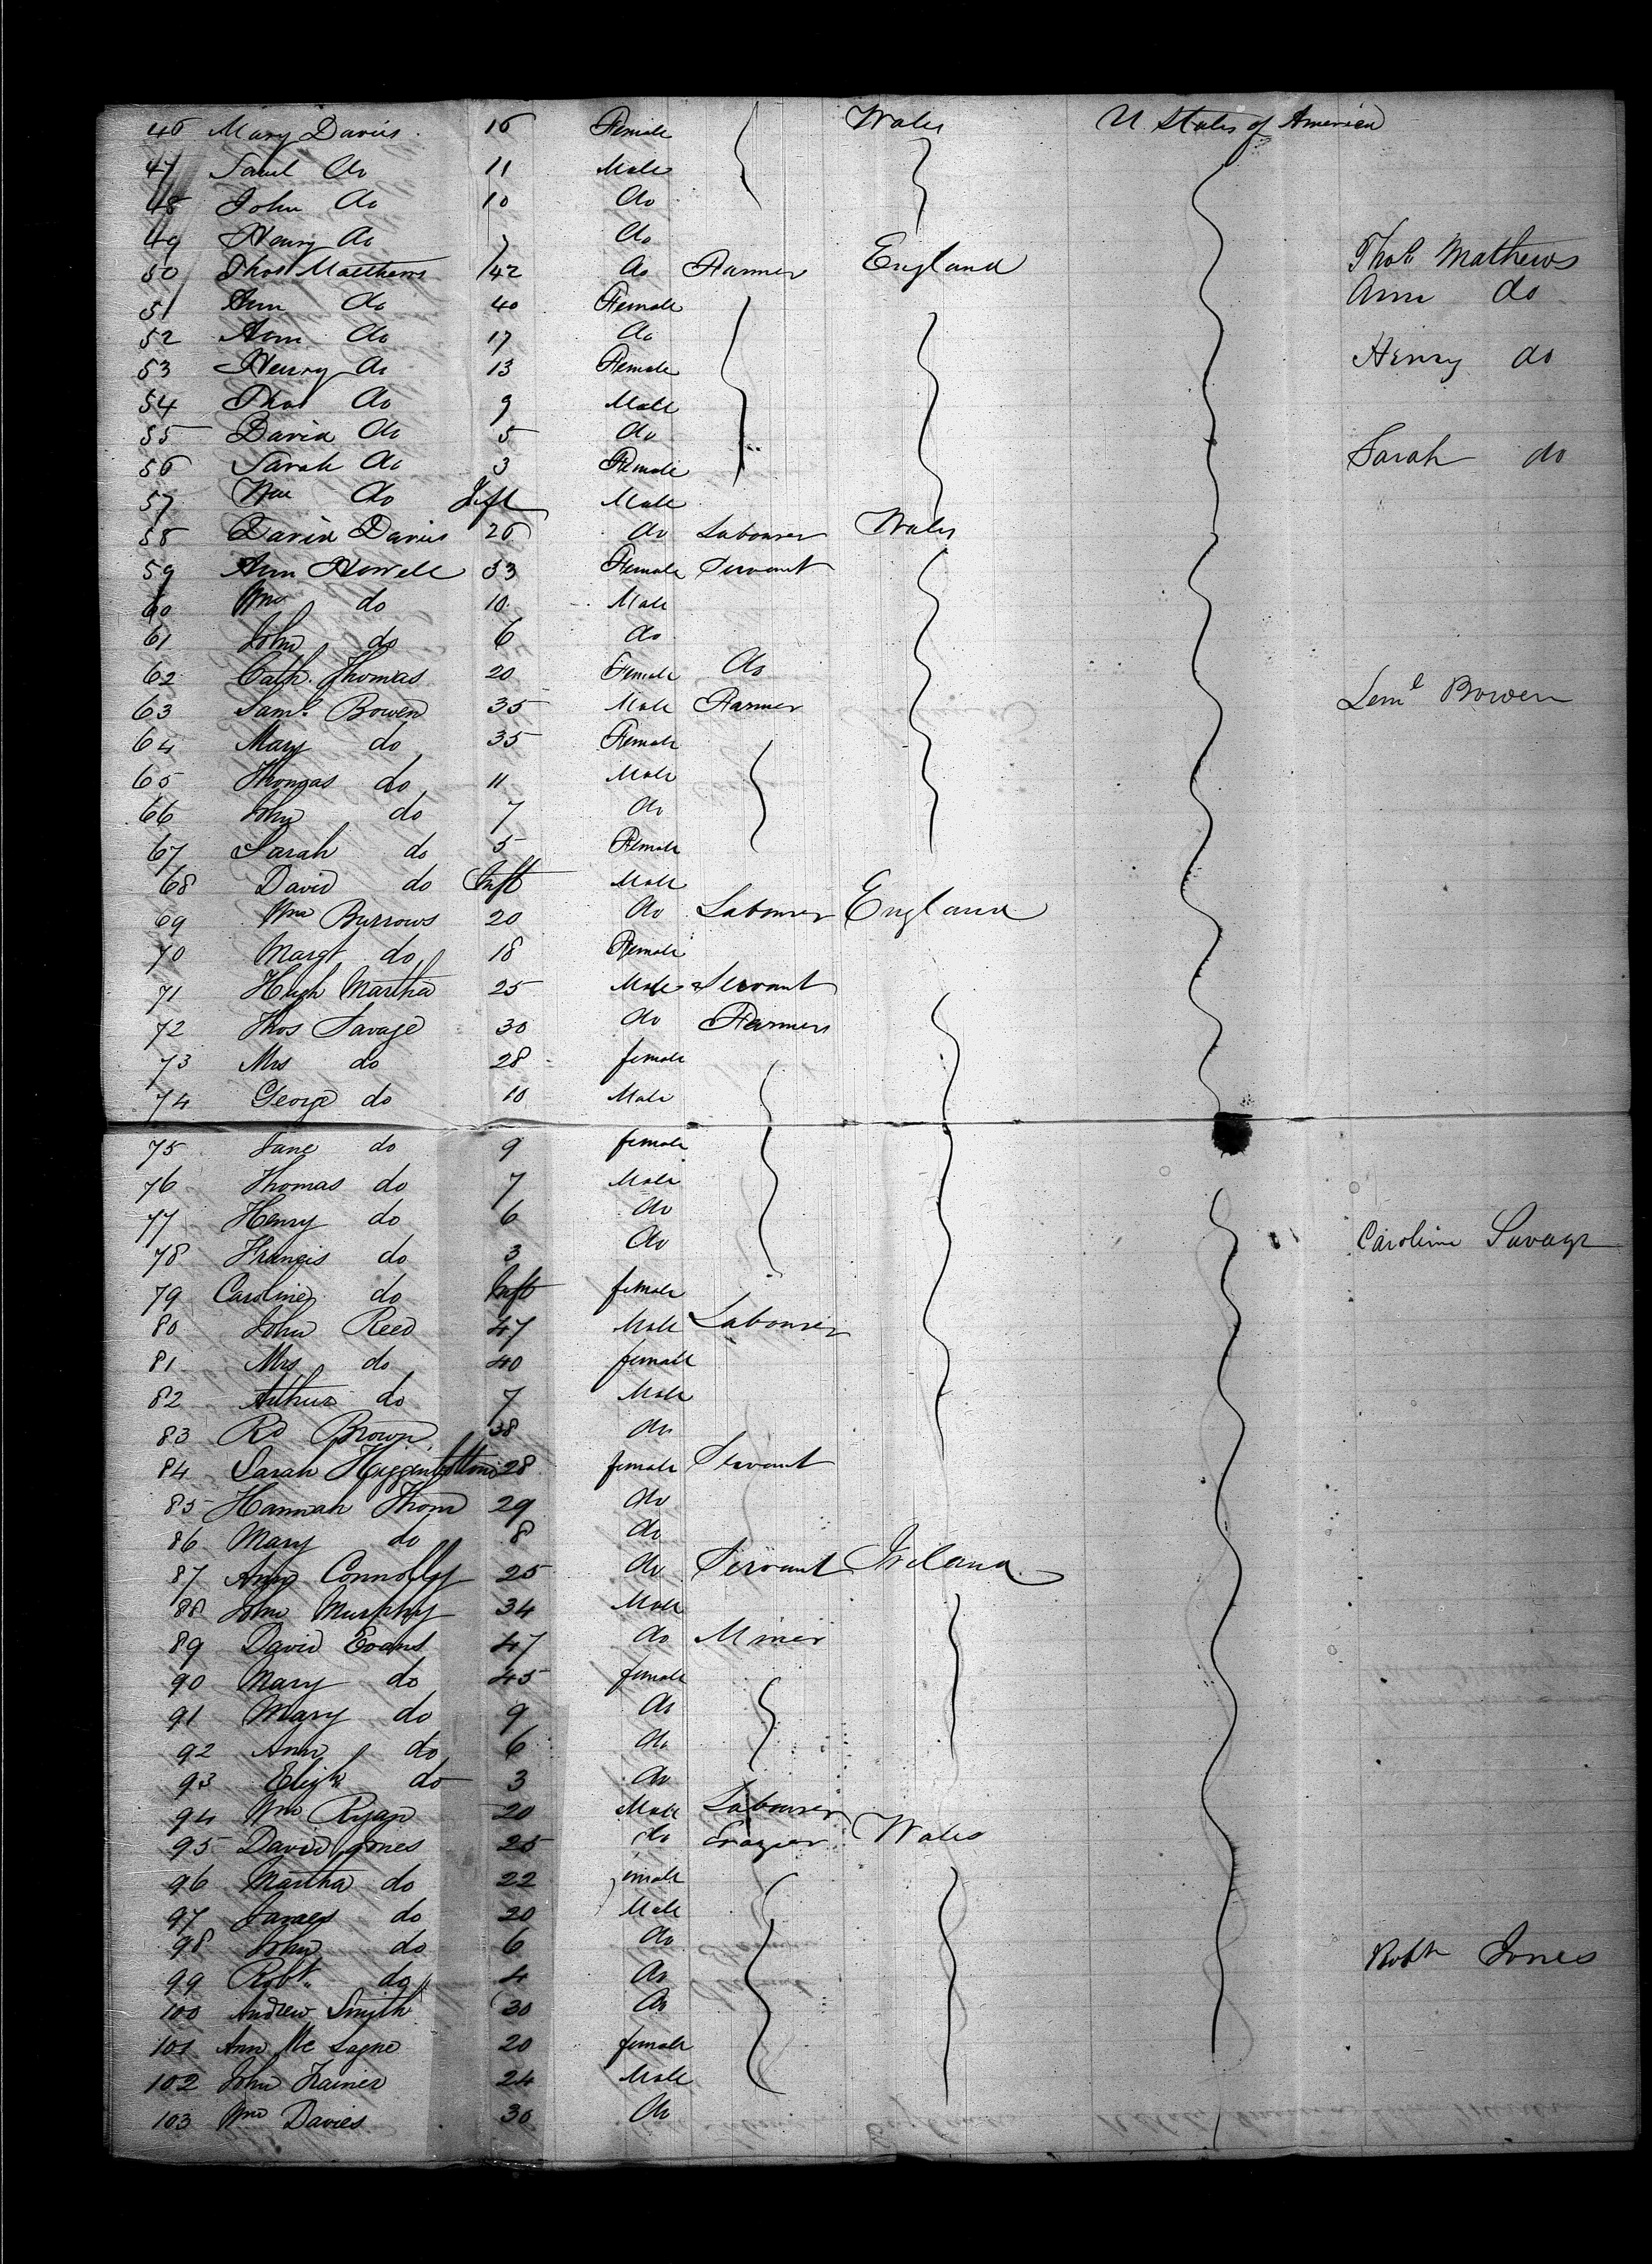 46 Mary Davies 16 Female Wales U. States of America
47 Saml do 11 Male
48 John do 10 do
49 Henry do 7 do
50 Thos Matthews 42 do Farmer England Thos Mathews
51 Ann do 40 Female Ann do
52 Ann do 17 do
53 Henry do 13 Female Henry do
54 Thos do 9 Male
55 David do 5 do
56 Sarah do 3 Female Sarah do
57 Wm do Inft Male
58 David Davies 26 do Labourer Wales
59 Ann Howell 33 Female Servant
60 Wm do 10 Male
61 John do 6 do
62 Cath. Thomas 20 Female do
63 Saml Bowen 35 Male Farmer Leml Bowen
64 Mary do 35 Female
65 Thomas do 11 Male
66 John do 7 do
67 Sarah do 5 Female
68 David do Inft Male
69 Wm Burrows 20 do Labourer England
70 Margt do 18 Female
71 Hugh Martha 25 Male Servant
72 Thos Savage 30 do Farmers
73 Mrs do 28 female
74 George do 10 Male
75 Jane do 9 female
76 Thomas do 7 Male
77 Henry do 6 do
78 Francis do 3 do Caroline Savage
79 Caroline do Inft female
80 John Reed 47 Male Labourer
81 Mrs do 40 female
82 Arthur do 7 Male
83 Rd Brown 38 do
84 Sarah Higginbottom 28 female Servant
85 Hannah Thom 29 do
86 Mary do 8 do
87 Ann Connolly 25 do Servant Ireland
88 John Murphy 34 Male
89 David Evans 47 do Miner
90 Mary do 45 female
91 Mary do 9 do
92 Ann do 6 do
93 Elizth do 3 do
94 Wm Ryan 20 Male Labourer
95 David Jones 25 do Wales
96 Martha do 22 female
97 James do 20 Male
98 John do 6 do
99 Robt do 4 do Robt Jones
100 Andrew Smith 30 do
101 Ann Mc 20 female
102 John Trainer 24 Male
103 Wm Davies 30 do